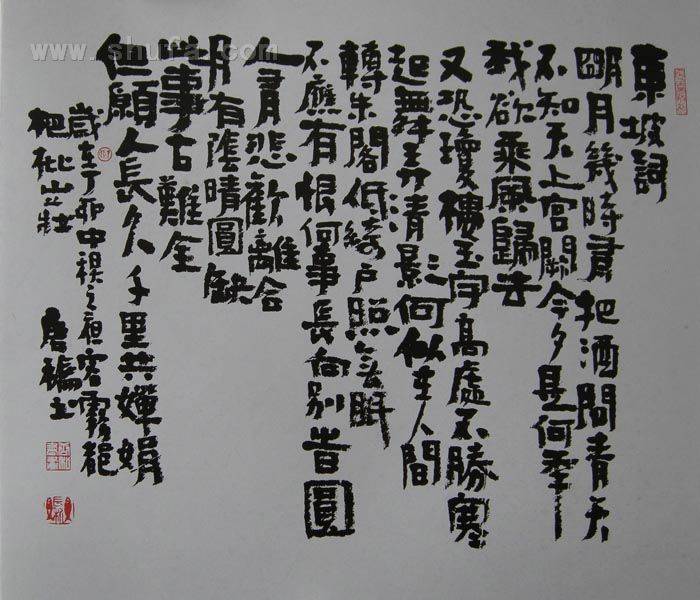 www.shufa.com
東坡詞
明月幾時有把酒問青天
不知天上宮闕今夕是何年
我欲乘風歸去
又恐瓊樓玉宇高處不勝寒
起舞弄清影何似在人間
轉朱閣低綺戶照無眠
不應有恨何事長向別時圓
人有悲歡離合
月有陰晴圓缺
此事古難全
但願人長久千里共嬋娟
歲在丁卯中秋之夜客霧都
枇山之莊